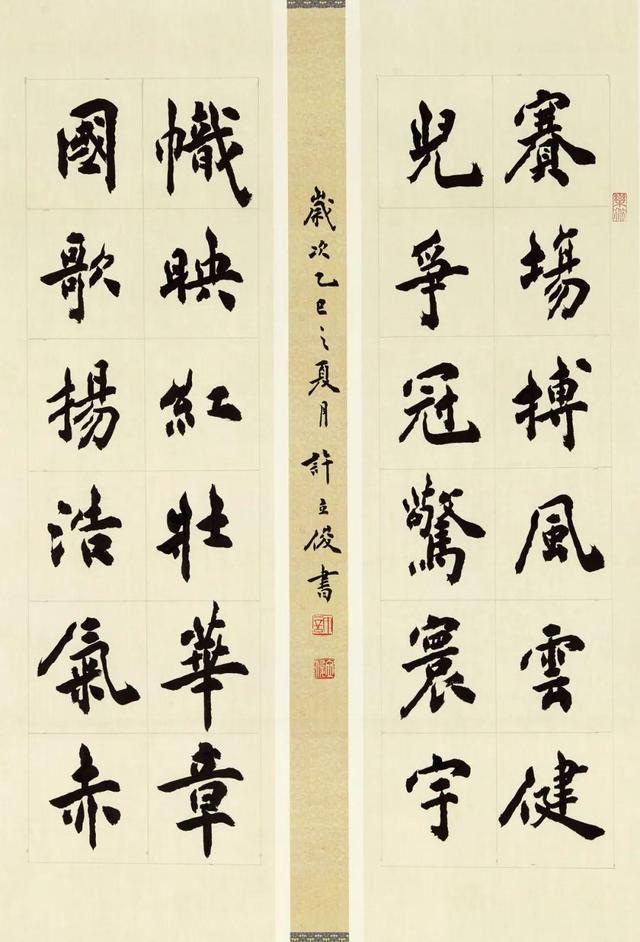 賽場搏風雲健
兒爭冠驚寰宇
國歌揚浩氣赤
幟映紅壯華章
歲次乙巳之夏月許立俊書